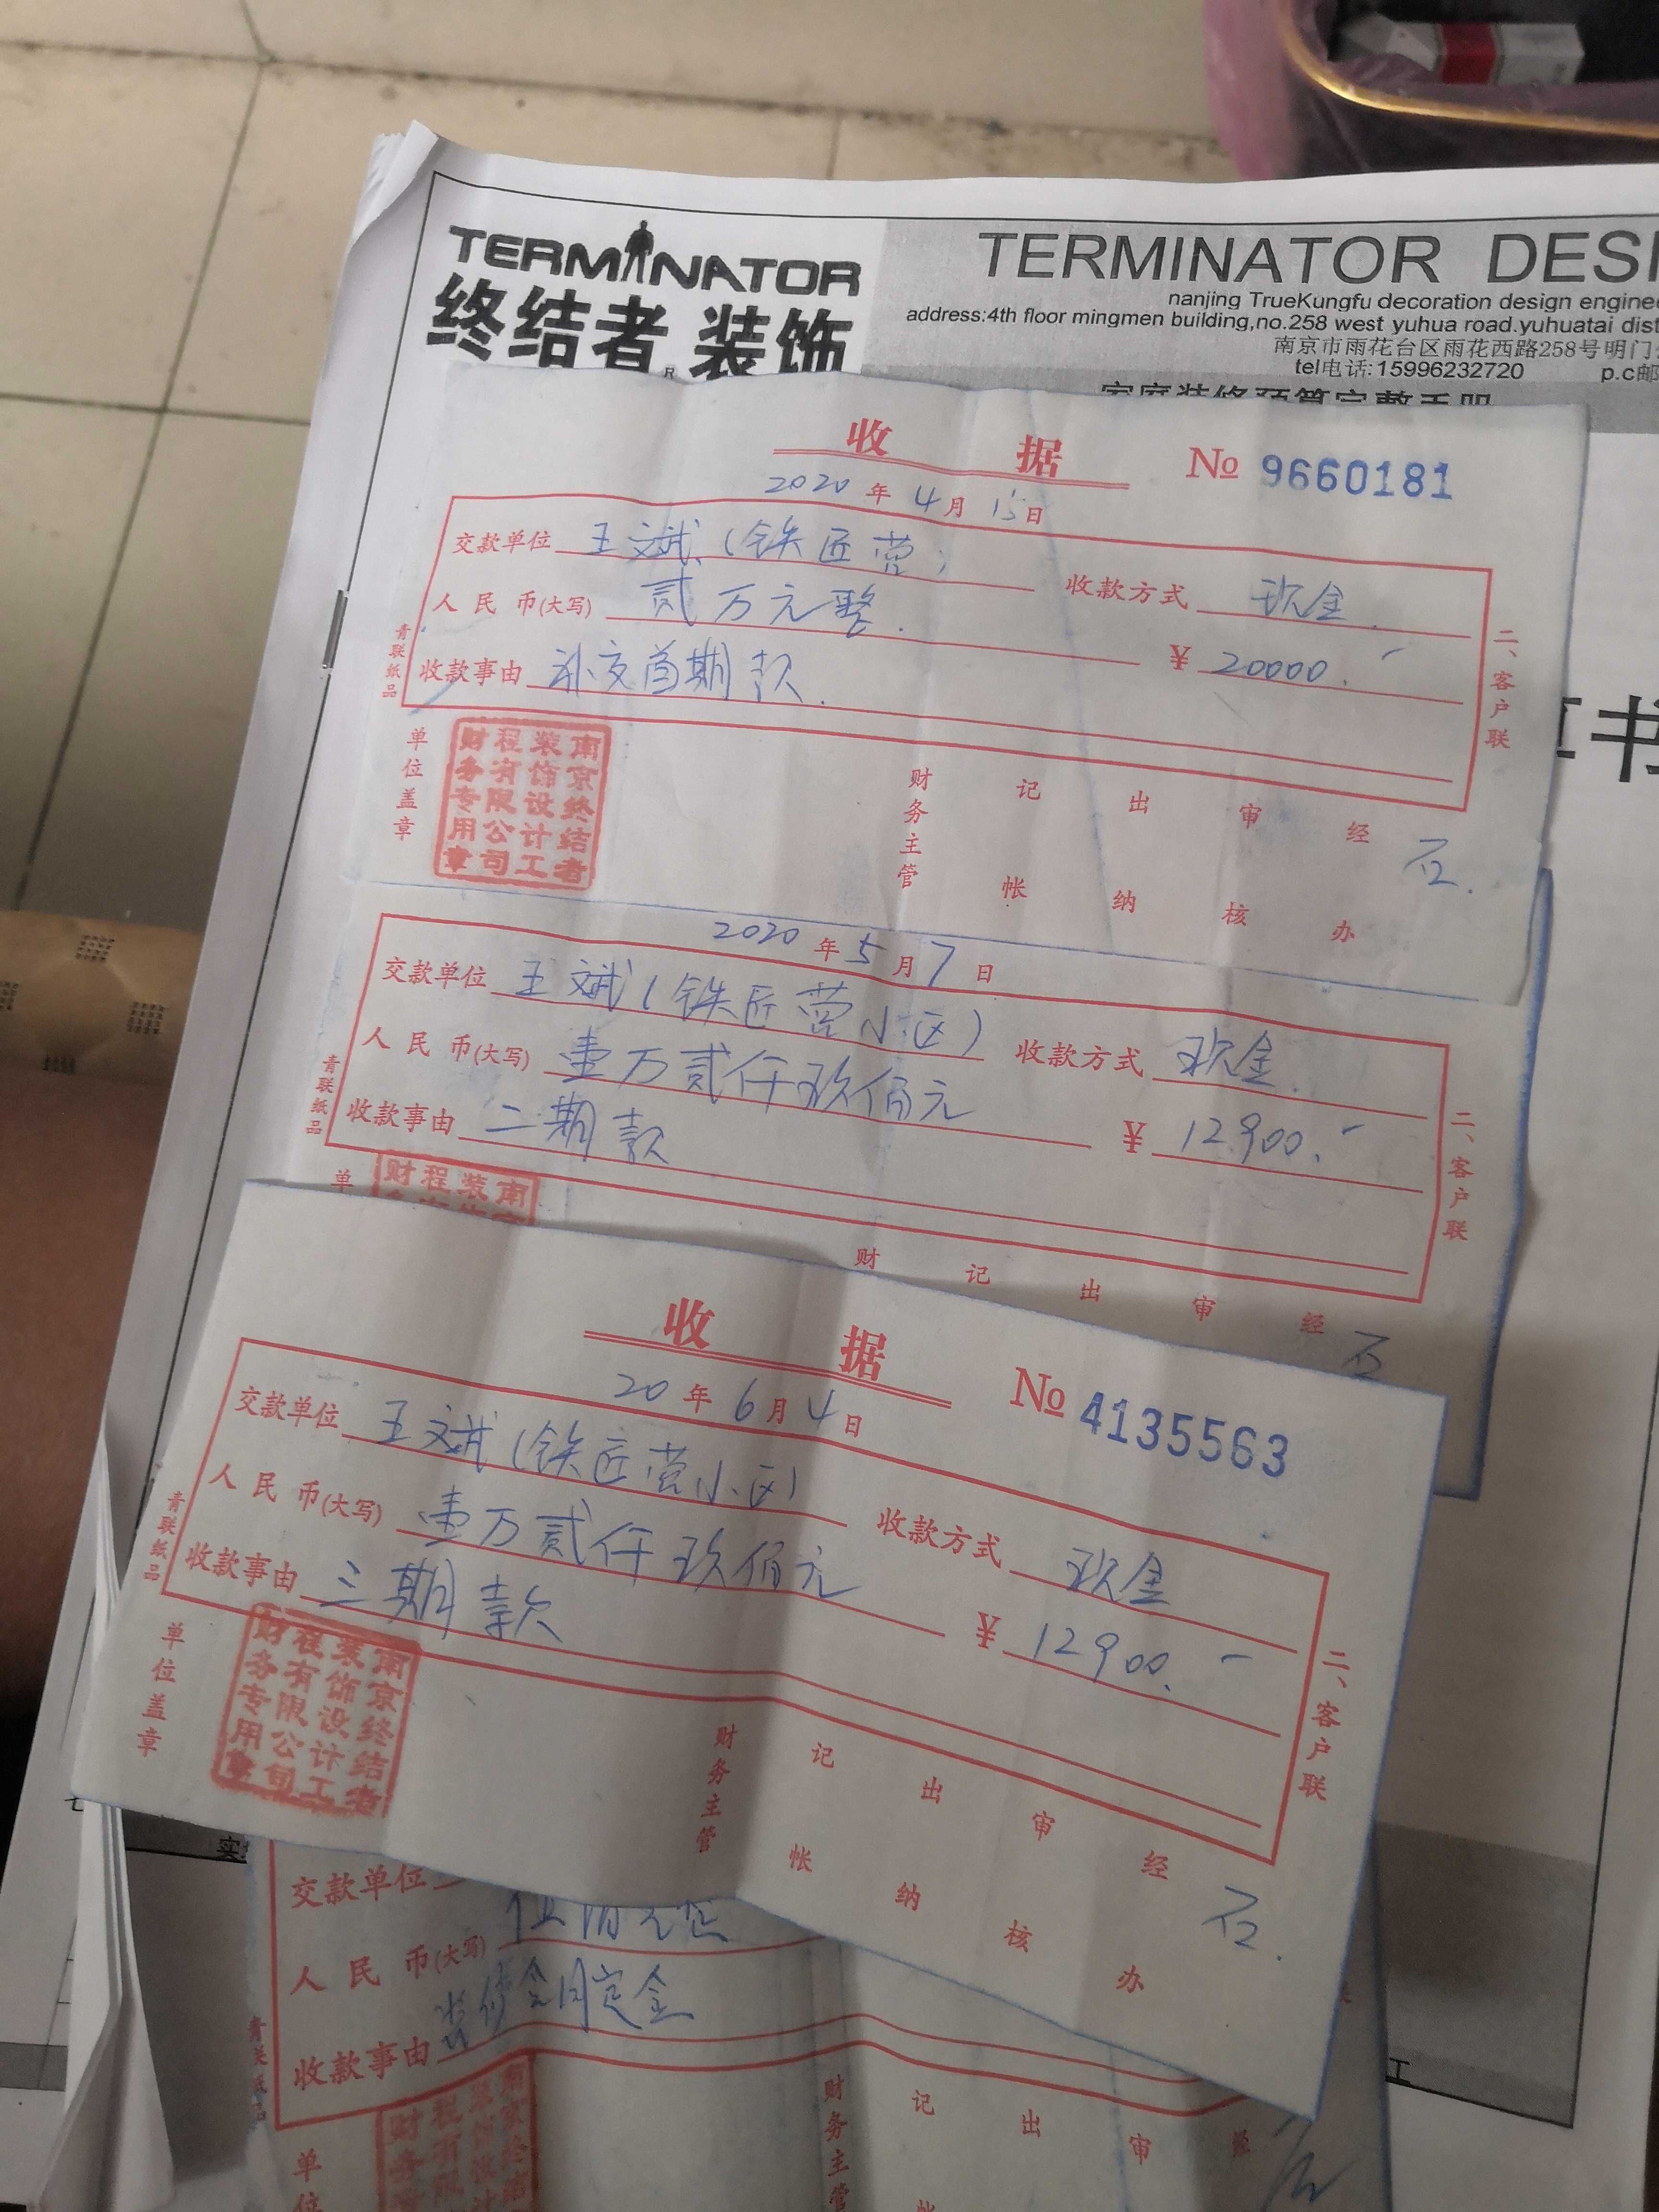 TERMINATOR
终结者 装饰
R
TERMINATOR DESI
nanjing TrueKungfu decoration design enginee
address:4th floor mingmen building,no.258 west yuhua road.yuhuatai dist
南京市雨花台区雨花西路258号明门
tel电话:15996232720 p.c邮
家庭装修预算完整手册
书
收 据 № 9660181
2020 年 4 月 15 日
交款单位 王斌(铁匠营) 收款方式 现金
人民币(大写) 贰万元整. ¥ 20000.-
收款事由 补交首期款.
青联纸品
二、客户联
单位盖章
南京终结者装饰设计工程有限公司财务专用章
财务主管 记帐 出纳 审核 经办 石.
2020 年 5 月 7 日
交款单位 王斌(铁匠营小区) 收款方式 现金.
人民币(大写) 壹万贰仟玖佰元 ¥ 12900.-
收款事由 二期款
青联纸品
二、客户联
单
财程装南
财 记 出 审 经 石
收 据 № 4135563
20 年 6 月 4 日
交款单位 王斌(铁匠营小区) 收款方式 现金
人民币(大写) 壹万贰仟玖佰元 ¥ 12900.-
收款事由 三期款
青联纸品
二、客户联
单位盖章
南京终结者装饰设计工程有限公司财务专用章
财务主管 记帐 出纳 审核 经办 石.
交款单位
人民币(大写)
收款事由 装修合同定金
青联纸品
单位
财务主管 记帐 出 审
工